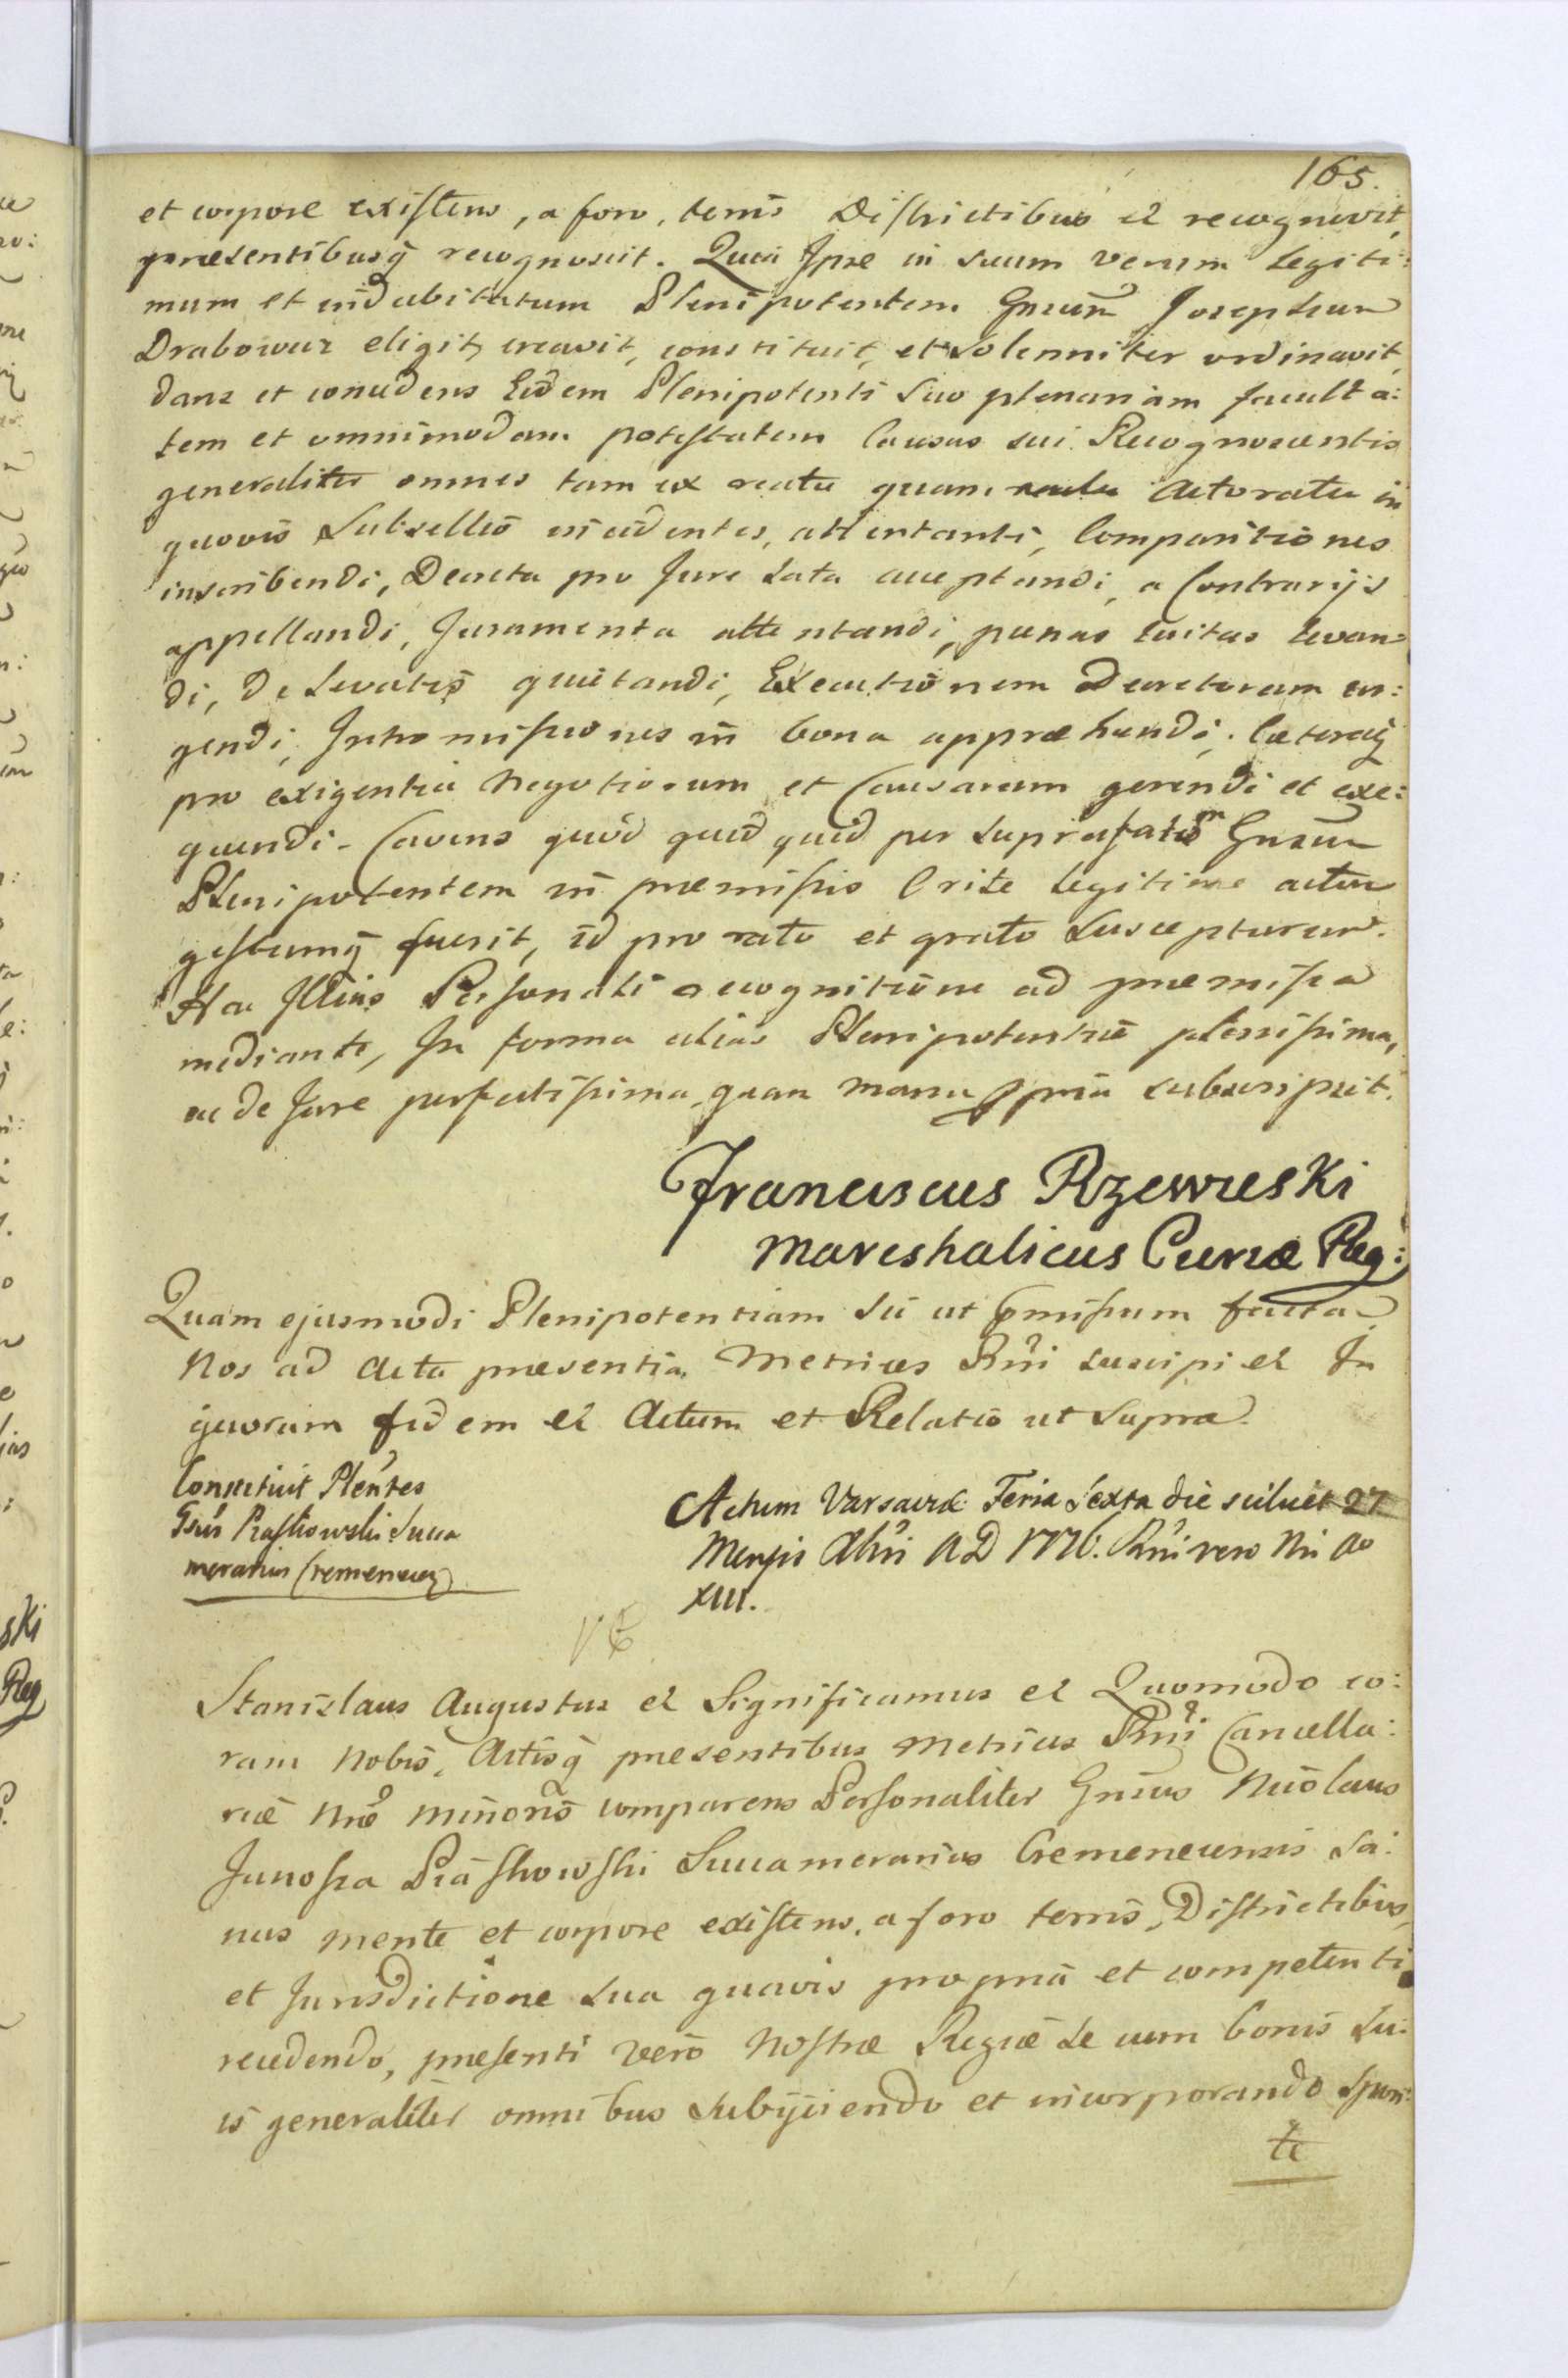 165.
et corpore existens, a foro, terris Districtibus et recognovit,
praesentibusq̃ recognoscit. Quia Ipse in suum verum Legiti:
mum et indubitatum Plenipotentem Gnsum Josephum
Drabowicz eligit, creavit, constituit, et solenniter ordinavit,
dans et concedens Eidem Plenipotenti suo plenariam faculta:
tem et omnimodam potestatem Causas sui Recognoscentis
generaliter omnes tam ex reatu quam Actoratu in
quovis Subsellio incidentes, attentandi, Comparitiones
inscribendi, Decreta pro Jure Lata acceptandi, a Contrarijs
appellandi, Juramenta attentandi, paenas luitas levan=
di, De Levatis quietandi, Executionem Decretorum ur:
gendi, Intromissiones in bona appraehendi, Caeteraq̃
pro exigentia Negotiorum et Causarum gerendi et exe:
quendi. Cavens quod quid quid per suprafatum Gnsum
Plenipotentem in praemissis Crite Legitime actum
gestumq̃ fuerit, id pro rato et grato suscepturum.
Hac Illius Personali recognitione ad praemissa
mediante, In forma alias Plenipotentiae plenissima,
ac de Jure perfectissima, quam manu ppria subscripsit.
Franciscus Rzewuski
mareshalicus Curiae Reg:
Quam ejusmodi Plenipotentiam sic ut pmissum factam
Nos ad Acta praesentia Metrices Rni suscipi et In
quorum fidem et Actum et Relatio ut Supra.
Constituit Plentes
Gsus Praskowski Succa
merarius Cremenecen
Actum Varsaviae Feria Sexta die scilicet 27
Mensis Xbris AD 1776. Rni vero Nri ao
XIII.
Stanislaus Augustus et Significamus et Quomodo co:
ram Nobis, Actisq̃ praesentibus Metrices Rni Cancella:
riae Nrae Minoris comparens Personaliter Gnsus Nicolaus
Junosza Piaskowski Succamerarius Cremenecensis sa:
nus mente et corpore existens, a foro terris, Districtibus,
et Jurisdictione sua quavis propria et competenti
recedendo, praesenti vero Nostrae Regiae se cum bonis su:
is generaliter omnibus subijciendo et incorporando spon:
te